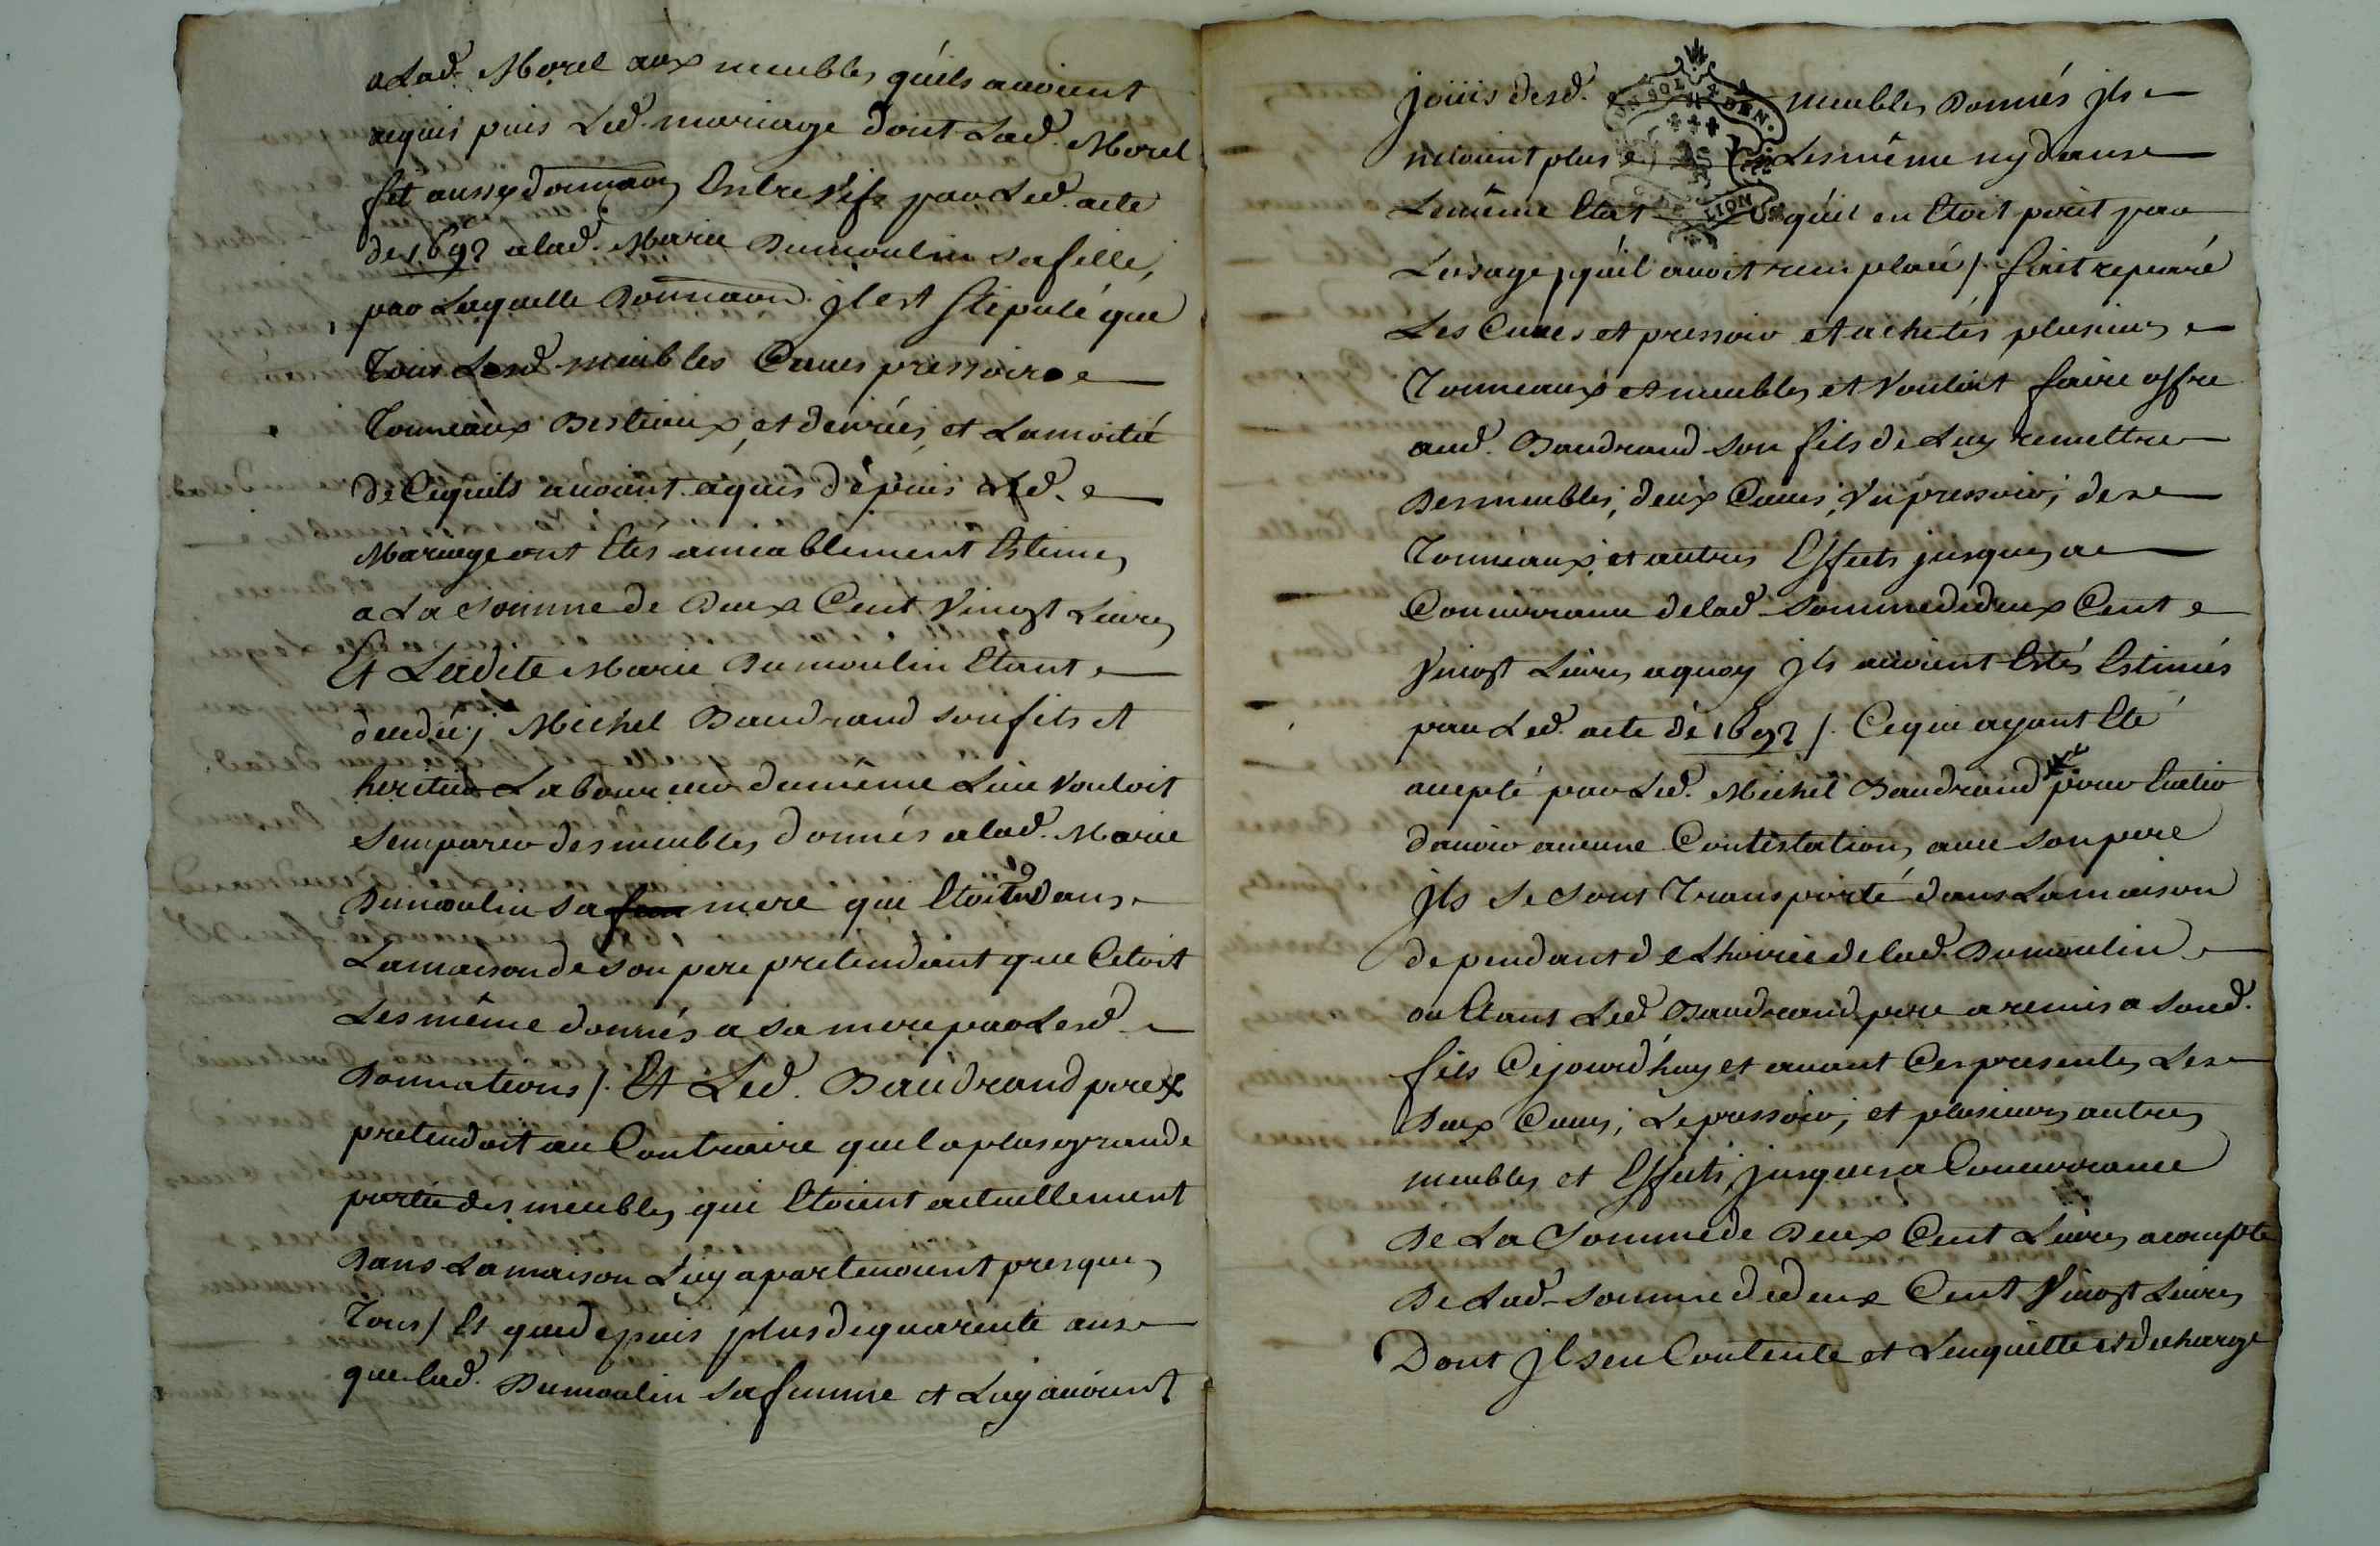 a Lad. Morel aux meubles quils avoient
aquis puis Led. mariage dont Lad. Morel
fit aussy donnaon Entre Vifs par Led. acte
de 1692 a lad. Marie Dumoulin sa fille,
par Laquelle Donnaon. Jl est stipulé que
Tous Lesd. meubles Cuues pressoire
Tonneaux Bestiaux, et denrées, et La moitié
de Ce quils avoient aquis depuis Led.
Mariage ont Etés amiablement Estimes
a La somme de Deux Cent Vingt Livres
Et Ladite Marie Dumoulin Etant
decedée; Michel Baudrand son fils et
heritier Laboureur du même Lieu vouloit
semparer des meubles donnés a lad. Marie
Dumoulin sa mere qui Etoient dans
La maison de son pere pretendant que Cetoit
Les même donnés a sa mere par Lesd.
Donnations /. Et Led. Baudrand pere
pretendoit au Contraire que la plus grande
partie des meubles qui Etoient actuellement
Dans La maison Luy apartenoient presque
Tous / Et que depuis plus de quarente ans
que lad. Dumoulin sa femme et Luy avoient
joüis desd. meubles Donnés Jls
netoient plus Les même ny dans
Le même Etat quil en Etoit perit par
Lusage, quil avoit remplacé /. fait reparé
Les Cuues et pressoir et achetés plusieurs
Tonneaux et meubles et Vouloit faire offre
aud. Baudrand son fils de Luy remettre
Des meubles, deux Cuues, Vn pressoir, des
Tonneaux, et autres Effets jusques a
Concurrance de lad. somme de deux Cent
Vingt Livres a quoy Jls avoient Estés Estimés
par Led. acte de 1692 /. Ce qui ayant Eté
accepté par Led. Michel Baudrand pour Eviter
davoir aucune Contestation, avec son pere
Jls se sont Transporté dans La maison
dependant de Lhoirie de lad. Dumoulin
ou Etant Led. Baudrand pere a remis a sond.
fils Cejourdhuy et avant Ces presentes Les
Deux Cuues, Le pressoir, et plusieurs autres
meubles et Effets, jusques a Concurrance
De La Somme de Deux Cent Livres acompte
De Lad. somme de deux Cent Vingt Livres
Dont Jl sen Contente et Lenquitte et decharge